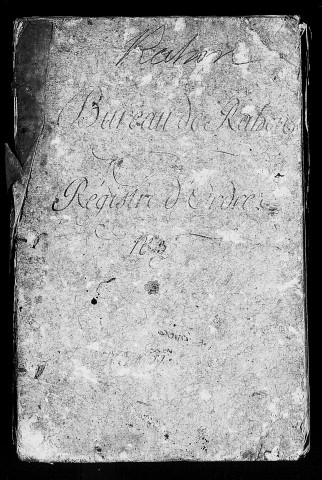 Rahon
Bureau de Rahon
Registre d'Ordre
N.° 3